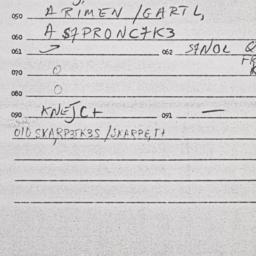 050 ARIMEN/GARTL,
060 A S7PRONC7K3
061 062 S7NOL
070 O
080 O
090 KNEJC+ 091 —
010 SKARP3TK3S/SKARPE,T+